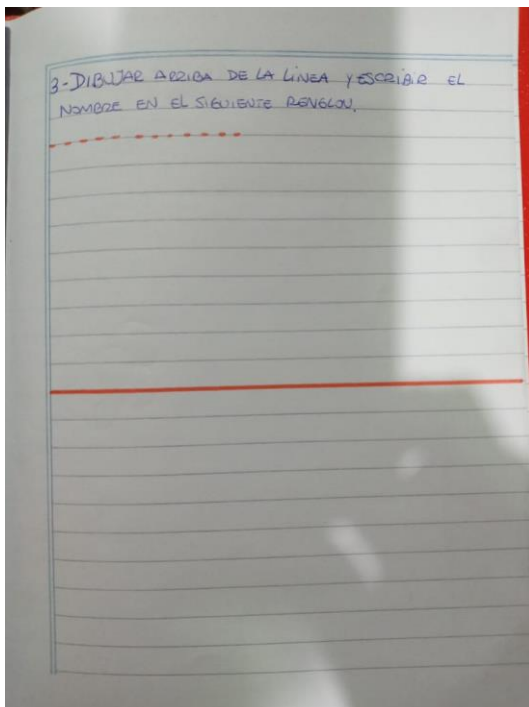 3-DIBUJAR ARRIBA DE LA LÍNEA Y ESCRIBIR EL
NOMBRE EN EL SIGUIENTE RENGLON.